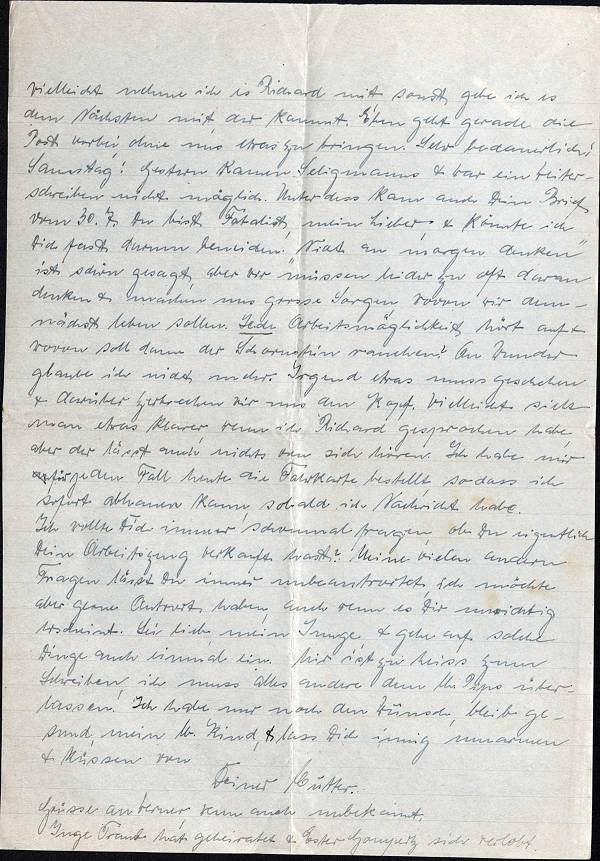 vielleicht nehme ich es Richard mit sonst gebe ich es
dem Nächsten mit der kommt. Eben geht gerade die
Post vorbei ohne uns etwas zu bringen. Sehr bedauerlich!
Samstag! Gestern kamen Seligmanns & war ein Weiter-
schreiben nicht möglich. Unterdess kam auch Dein Brief
vom 30.7. Du bist Fatalist, mein Lieber, & könnte ich
Dich fast darum beneiden. "Nicht an morgen denken"
ist schön gesagt, aber wir müssen leider zu oft daran
denken & machen uns grosse Sorgen wovon wir dem-
nächst leben sollen. Jede Arbeitsmöglichkeit hört auf &
wovon soll dann der Schornstein rauchen? An Wunder
glaube ich nicht mehr. Irgend etwas muss geschehen
& darüber zerbrechen wir uns den Kopf. Vielleicht sieht
man etwas klarer wenn ich Richard gesprochen habe,
aber der lässt auch nichts von sich hören. Ich habe mir
für jeden Fall heute die Fahrkarte bestellt sodass ich
sofort abhauen kann, sobald ich Nachricht habe.
Ich wollte Dich immer schonmal fragen, ob Du eigentlich
Dein Arbeitszeug verkauft hast? Meine vielen anderen
Fragen lässt Du immer unbeantwortet, ich möchte
aber gerne Antwort haben, auch wenn es Dir unwichtig
erscheint. Sei lieb, mein Junge & gehe auf solche
Dinge auch einmal ein. Mir ist zu heiss zum
Schreiben ich muss alles andere dem lb. Papa über-
lassen! Ich habe nur noch den Wunsch, bleib ge-
sund mein lb. Kind, & lass Dich innig umarmen
& küssen von
Deiner Mutter.
Grüsse an Werner wenn auch unbekannt.
Inge hat geheiratet & Ester Gompertz sich verlobt.